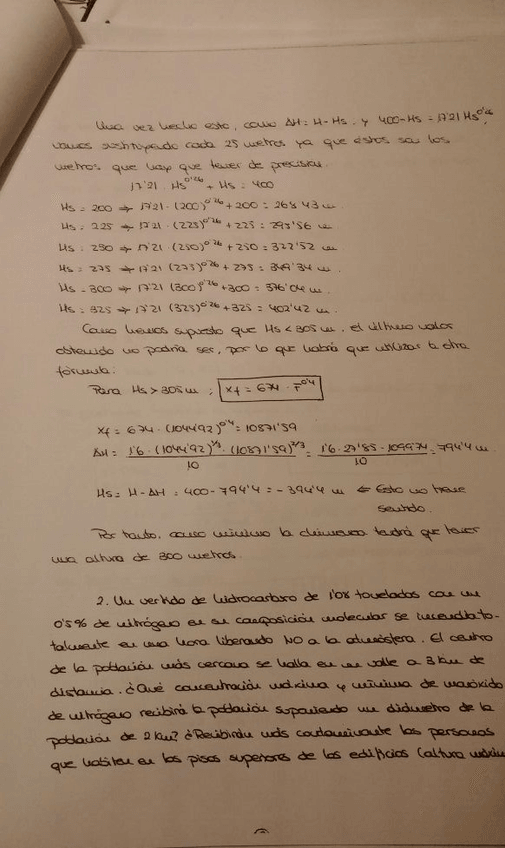 Una vez hecho esto, como ΔH = H-Hs. y 400-Hs = 17'21 Hs^0'26,
vamos sustituyendo cada 25 metros ya que éstos son los
metros que hay que tener de precisión.
17'21 · Hs^0'26 + Hs = 400
Hs = 200 → 17'21 · (200)^0'26 + 200 = 268'43 m.
Hs = 225 → 17'21 · (225)^0'26 + 225 = 295'56 m.
Hs = 250 → 17'21 · (250)^0'26 + 250 = 322'52 m
Hs = 275 → 17'21 (275)^0'26 + 275 = 349'34 m.
Hs = 300 → 17'21 (300)^0'26 + 300 = 376'04 m.
Hs = 325 → 17'21 (325)^0'26 + 325 = 402'42 m.
Como hemos supuesto que Hs < 305 m. el último valor
obtenido no podría ser, por lo que habrá que utilizar la otra
fórmula:
Para Hs > 305 m ; xf = 674 · F^0'4
xf = 674 · (1044'92)^0'4 = 10871'59
ΔH = 1'6 · (1044'92)^1/3 · (10871'59)^2/3 / 10 = 1'6 · 27'85 · 10997'4 / 10 = 794'4 m.
Hs = H - ΔH = 400 - 794'4 = -394'4 m ← Esto no tiene
sentido.
Por tanto, como mínimo la chimenea tendrá que tener
una altura de 300 metros.
2. Un vertido de hidrocarburo de 1'08 toneladas con un
0'5% de nitrógeno en su composición molecular se incendia to-
talmente en una hora liberando NO a la atmósfera. El centro
de la población más cercana se halla en un valle a 3 km de
distancia. ¿Qué concentración máxima y mínima de monóxido
de nitrógeno recibirá la población suponiendo un diámetro de la
población de 2 km? ¿Recibirán más contaminante las personas
que habiten en los pisos superiores de los edificios (altura